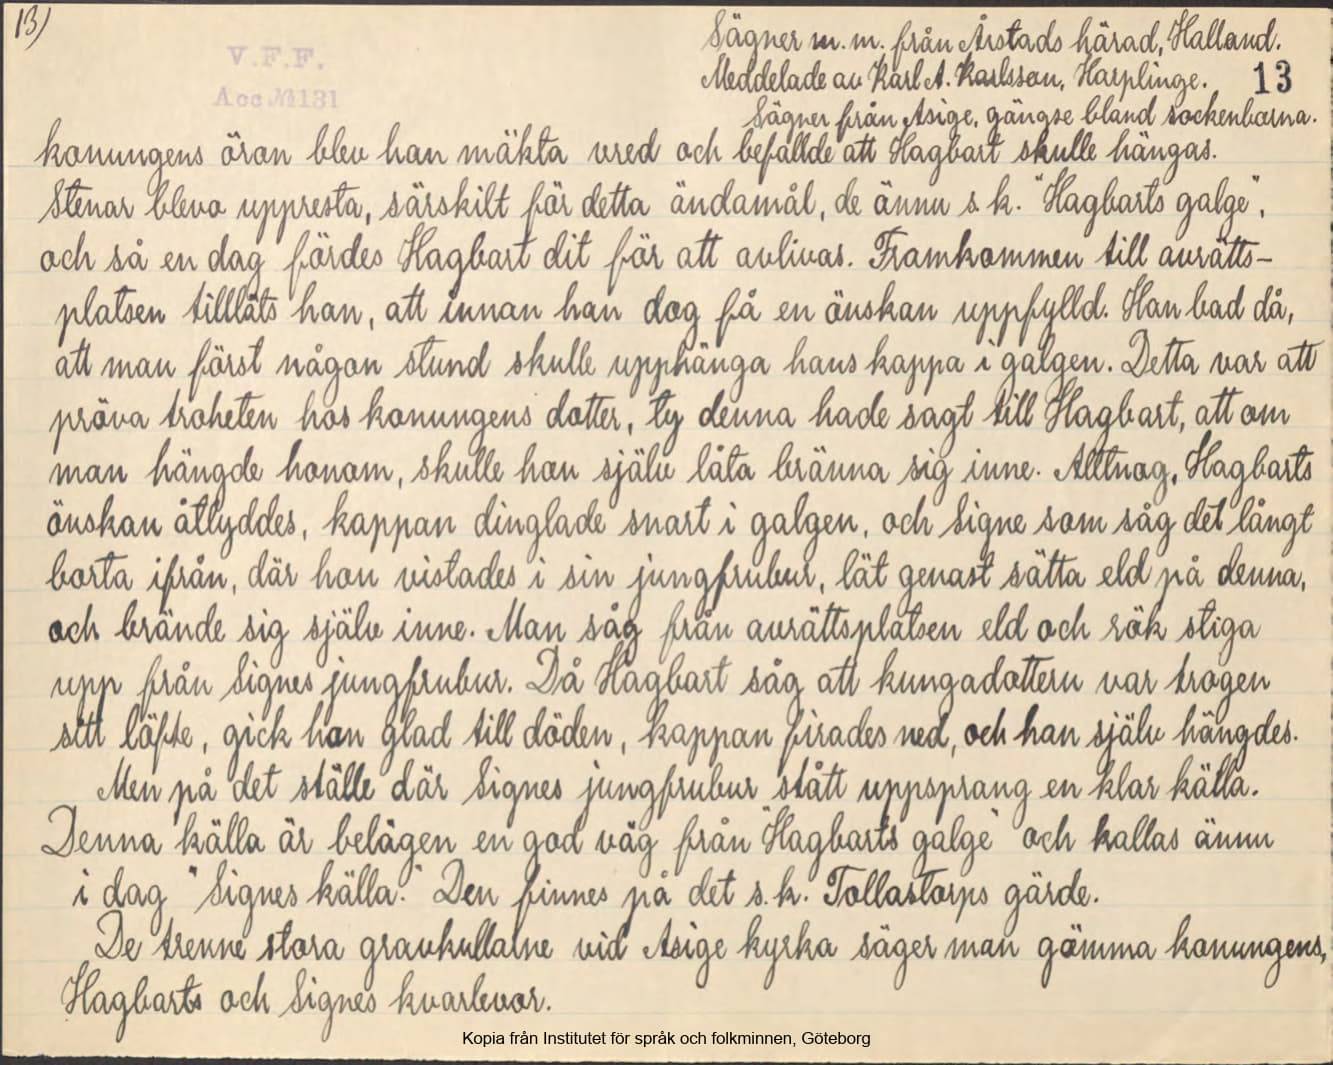 13)
V.F.F.
Acc № 131
Sägner m.m. från Årstads härad, Halland.
Meddelade av Karl A. Karlsson, Harplinge.
13
Sägner från Asige, gängse bland sockenborna.
konungens öron blev han mäkta vred och befallde att Hagbart skulle hängas.
Stenar blevo uppresta, särskilt för detta ändamål, de ännu s.k. "Hagbarts galge",
och så en dag fördes Hagbart dit för att avlivas. Framkommen till avrätts-
platsen tilläts han, att innan han dog få en önskan uppfylld. Han bad då,
att man först någon stund skulle upphänga hans kappa i galgen. Detta var att
pröva troheten hos konungens dotter, ty denna hade sagt till Hagbart, att om
man hängde honom, skulle hon själv låta bränna sig inne. Alltnog, Hagbarts
önskan åtlyddes, kappan dinglade snart i galgen, och Signe som såg det långt
borta ifrån, där hon vistades i sin jungfrubur, lät genast sätta eld på denna,
och brände sig själv inne. Man såg från avrättsplatsen eld och rök stiga
upp från Signes jungfrubur. Då Hagbart såg att kungadottern var trogen
sitt löfte, gick han glad till döden, kappan firades ned, och han själv hängdes.
Men på det ställe där Signes jungfrubur stått uppsprang en klar källa.
Denna källa är belägen en god väg från "Hagbarts galge" och kallas ännu
i dag "Signes källa." Den finnes på det s.k. Tollastorps gärde.
De trenne stora gravkullarne vid Asige kyrka säger man gömma konungens,
Hagbarts och Signes kvarlevor.
Kopia från Institutet för språk och folkminnen, Göteborg